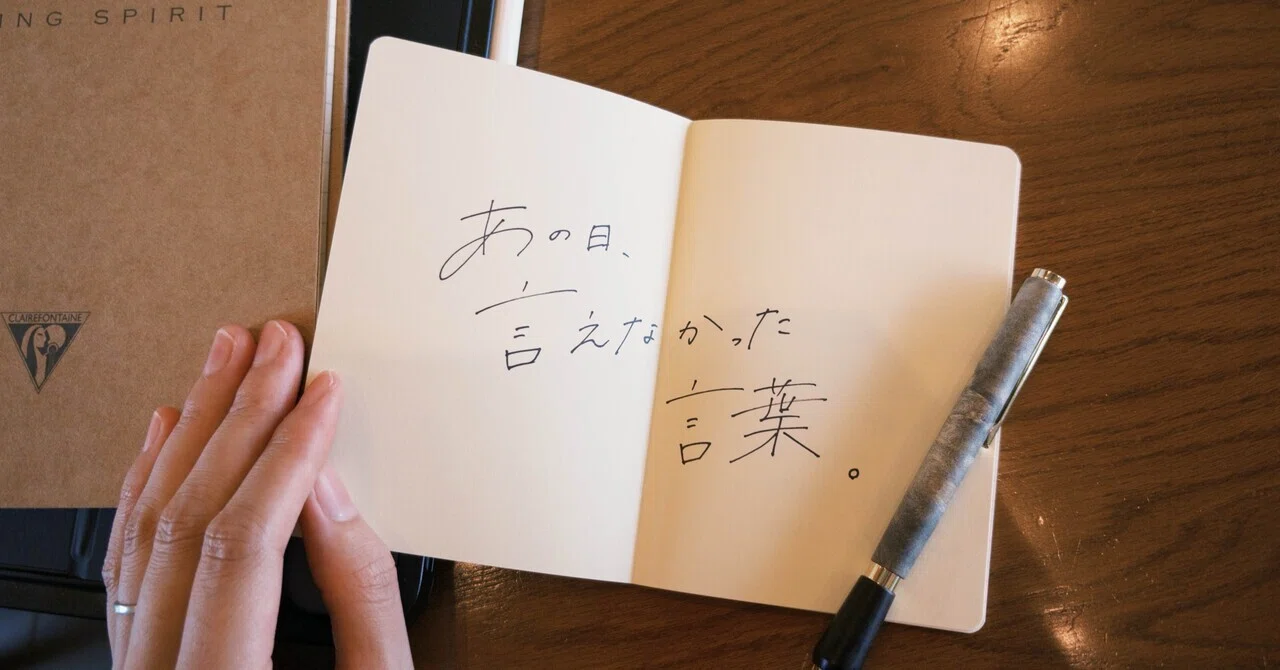 ING SPIRIT
CLAIREFONTAINE
あの日、
言えなかった
言葉。